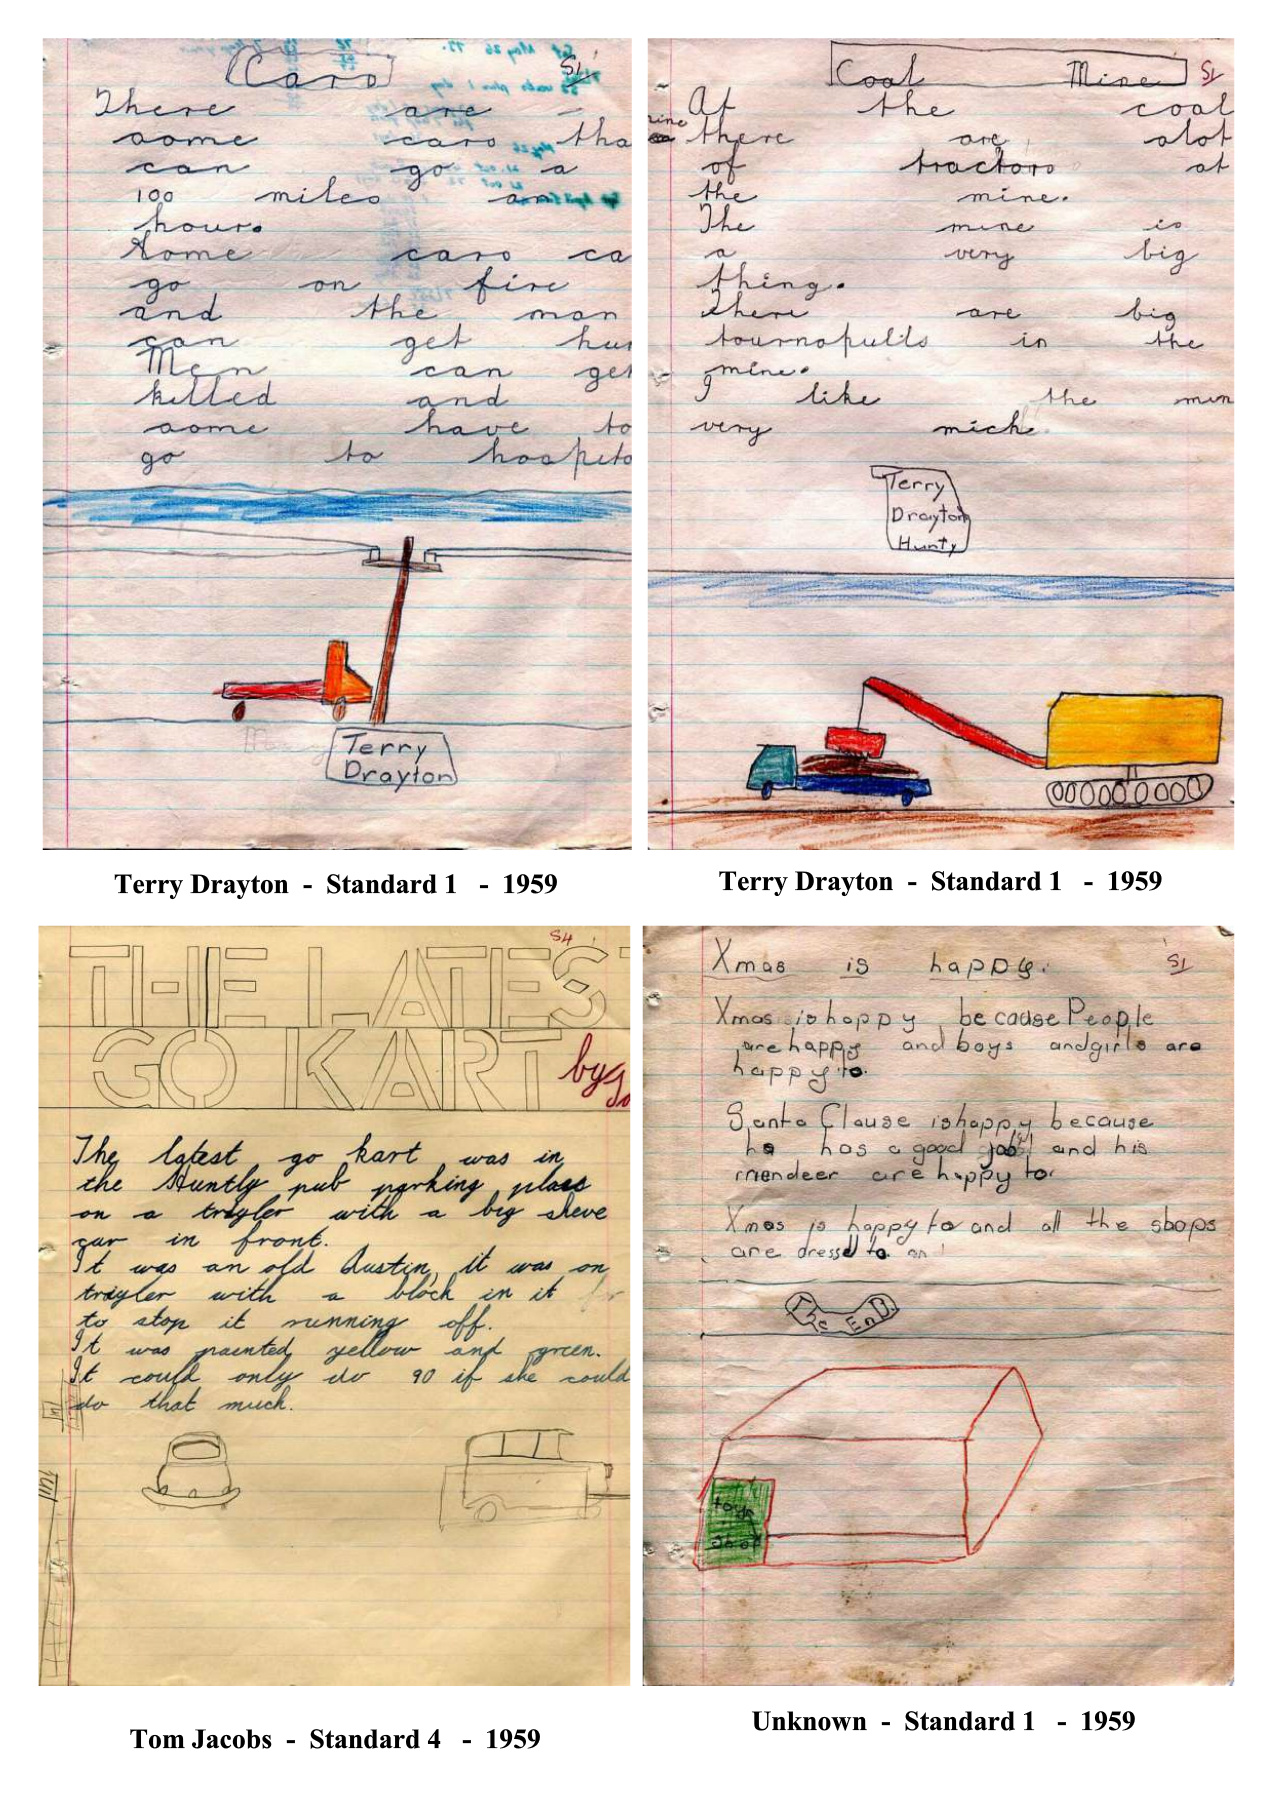 Cars
S1
There are
some cars tha
can go a
100 miles an
hour.
Some cars ca
go on fire
and the man
can get hur
Men can get
killed and
some have to
go to hospita
Terry
Drayton
Terry Drayton - Standard 1 - 1959
Coal Mine
S1
At the coal
mine there are alot
of tractors at
the mine.
The mine is
a very big
thing.
there are big
tournapulls in the
mine.
I like the min
very mich
Terry
Drayton
Huntly
Terry Drayton - Standard 1 - 1959
S4
THE LATEST
GO KART
by
The latest go kart was in
the Huntly pub parking place
on a trayler with a big sheve
car in front.
It was an old Austin, it was on
trayler with a block in it for
to stop it running off.
It was painted yellow and green.
It could only do 90 if she could
do that much.
Tom Jacobs - Standard 4 - 1959
Xmas is happy.
S1
Xmas is happy because People
are happy and boys and girls are
happy to.
Santa Clause is happy because
he has a good job and his
are happy to
Xmas is happy to and all the shops
are dressd to
The EnD.
toys
shop
Unknown - Standard 1 - 1959